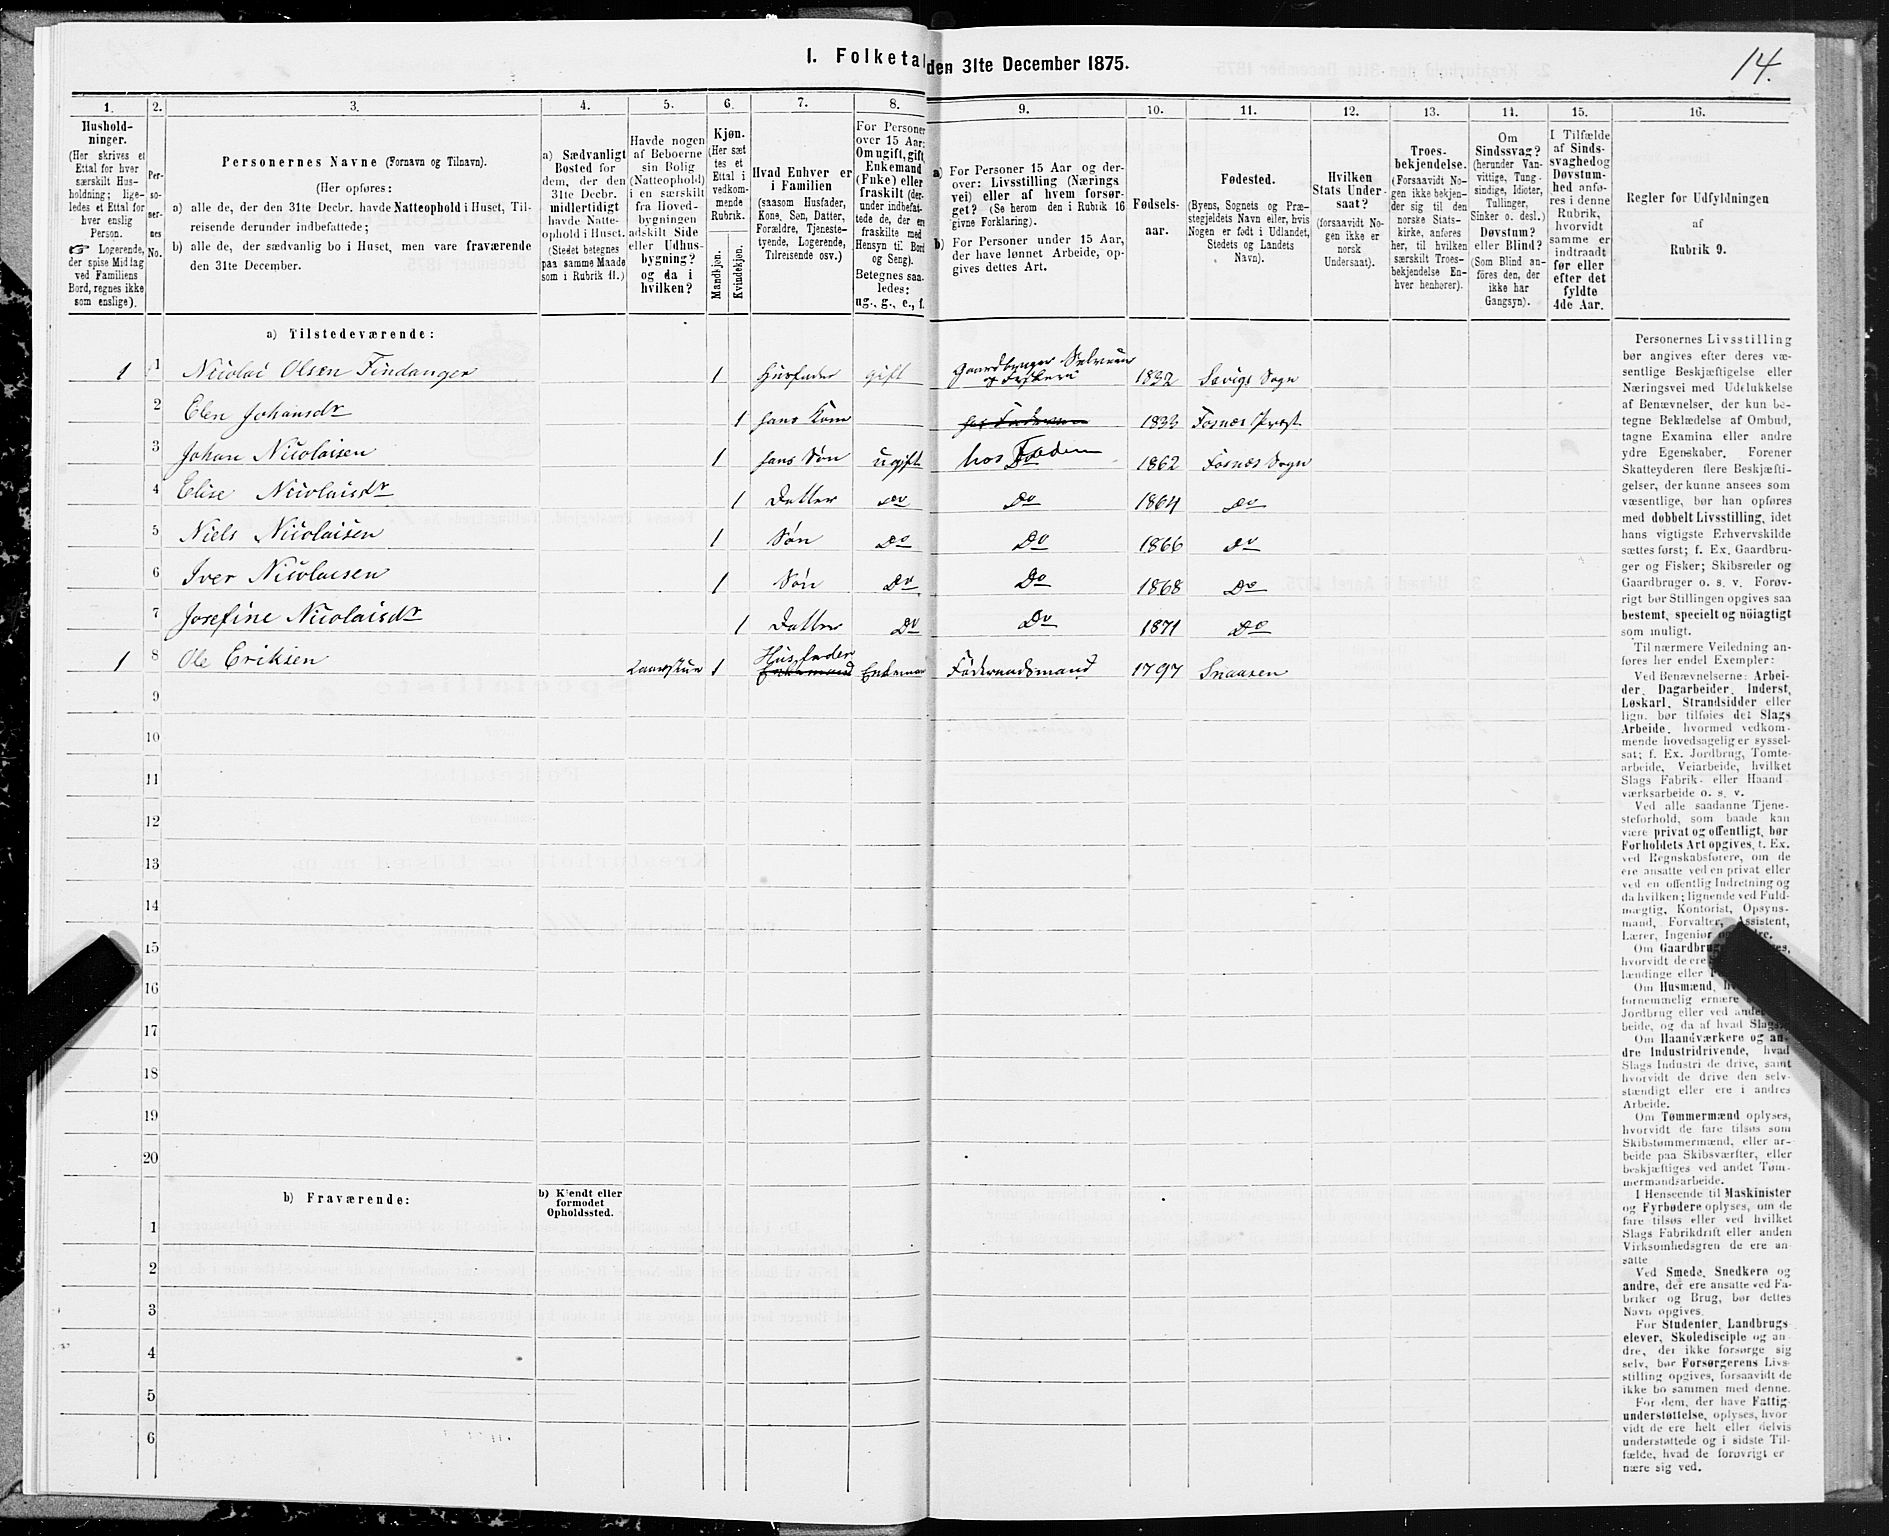 I. Folketal den 31te December 1875.
14.
1. 2. 3. 4. 5. 6. 7. 8. 9. 10. 11. 12. 13. 14. 15. 16.
Hushold-
ninger.
(Her skrives et
Ettal for hver
særskilt Hus-
holdning; lige-
ledes et Ettal for
hver enslig
Person.
☞ Logerende,
der spise Middag
ved Familiens
Bord, regnes ikke
som enslige).
Per-
so-
ner-
nes
No.
Personernes Navne (Fornavn og Tilnavn).
(Her opføres:
a) alle de, der den 31te Decbr. havde Natteophold i Huset, Til-
reisende derunder indbefattede;
b) alle de, der sædvanlig bo i Huset, men vare fraværende
den 31te December.
a) Sædvanligt
Bosted for
dem, der den
31te Decbr.
midlertidigt
havde Natte-
ophold i Huset.
(Stedet betegnes
paa samme Maade
som i Rubrik 11.)
Havde nogen
af Beboerne
sin Bolig
(Natteophold)
i en særskilt
fra Hoved-
bygningen
adskilt Side
eller Udhus-
bygning?
og da i
hvilken?
Kjøn.
(Her sæt
tes et
Ettal i
vedkom-
mende
Rubrik.
Mandkjøn.
Kvindekjøn.
Hvad Enhver er
i Familien
(saasom Husfader,
Kone, Søn, Datter,
Forældre, Tjeneste-
tyende, Logerende,
Tilreisende osv.)
For Personer
over 15 Aar:
Om ugift, gift,
Enkemand
(Enke) eller
fraskilt (der-
under indbefat-
tede de, der ere
fraskilte med
Hensyn til Bord
og Seng).
Betegnes saa-
ledes:
ug., g., e., f.
a) For Personer 15 Aar og der-
over: Livsstilling (Nærings
vei) eller af hvem forsør-
get? (Se herom den i Rubrik 16
givne Forklaring).
b) For Personer under 15 Aar,
der have lønnet Arbeide, op-
gives dettes Art.
Fødsels-
aar.
Fødested.
(Byens, Sognets og Præ-
stegjeldets Navn eller, hvis
Nogen er født i Udlandet,
Stedets og Landets
Navn).
Hvilken
Stats Under-
saat?
(forsaavidt No-
gen ikke er
norsk
Undersaat).
Troes-
bekjendelse.
(Forsaavidt No-
gen ikke bekjen-
der sig til den
norske Stats-
kirke, anføres
her, til hvilken
særskilt Troes-
bekjendelse En-
hver henhører).
Om
Sindssvag?
(herunder Van-
vittige, Tung-
sindige, Idioter,
Tullinger,
Sinker o. desl.)
Døvstum?
eller Blind?
(Som Blind an-
føres den, der
ikke har
Gangsyn).
I Tilfælde
af Sinds-
svaghed og
Døvstum-
hed anfø-
res i denne
Rubrik,
hvorvidt
samme er
indtraadt
før eller
efter det
fyldte
4de Aar.
Regler for Udfyldningen
af
Rubrik 9.
a) Tilstedeværende:
1 1 Nicolai Olsen Findanger 1 Husfader gift Gaardbruger Selveier og Fiskeri 1832 Sævigs Sogn
2 Elen Johansdr 1 hans Kone 1833 Fosnes Præst
3 Johan Nicolaisen 1 hans Søn ugift hos Faderen 1862 Fosnes Sogn
4 Elise Nicolaisdr 1 Datter Do Do 1864 Do
5 Niels Nicolaisen 1 Søn Do Do 1866 Do
6 Iver Nicolaisen 1 Søn Do Do 1868 Do
7 Josefine Nicolaisdr 1 Datter Do Do 1871 Do
1 8 Ole Eriksen 1 Husfader Enkemand Enkeman Føderaadsmand 1797 Snaasen
9
10
11
12
13
14
15
16
17
18
19
20
b) Fraværende:
b) Kjendt eller
formodet
Opholdssted.
1
2
3
4
5
6
Personernes Livsstilling
bør angives efter deres væ-
sentlige Beskjæftigelse eller
Næringsvei med Udelukkelse
af Benævnelser, der kun be-
tegne Beklædelse af Ombud,
tagne Examina eller andre
ydre Egenskaber. Forener
Skatteyderen flere Beskjæfti-
gelser, der kunne ansees som
væsentlige, bør han opføres
med dobbelt Livsstilling, idet
hans vigtigste Erhvervskilde
sættes først; f. Ex. Gaardbru-
ger og Fisker; Skibsreder og
Gaardbruger o. s. v. Forøv-
rigt bør Stillingen opgives saa
bestemt, specielt og nøiagtigt
som muligt.
Til nærmere Veiledning an-
føres her endel Exempler:
Ved Benævnelserne: Arbei-
der, Dagarbeider, Inderst,
Løskarl, Strandsidder eller
lign. bør tilføies det Slags
Arbeide, hvormed vedkom-
mende hovedsagelig er syssel-
sat; f. Ex. Jordbrug, Tomte-
arbeide, Veiarbeide, hvilket
Slags Fabrik- eller Haand-
værksarbeide o. s. v.
Ved alle saadanne Tjene-
steforhold, som baade kan
være privat og offentligt, bør
Forholdets Art opgives, f. Ex.
ved Regnskabsførere, om de
ere ansatte ved en privat eller
ved en offentlig Indretning og
da hvilken; lignende ved Fuld-
mægtig, Kontorist, Opsyns-
mand, Forvalter, Assistent,
Lærer, Ingeniør og
Om Gaardbrug
hvorvidt de ere
lændinge eller
Om Husmænd,
fornemmelig ernære
Jordbrug eller ved andet
beide, og da af hvad Slags.
Om Haandværkere og an-
dre Industridrivende, hvad
Slags Industri de drive, samt
hvorvidt de drive den selv-
stændigt eller ere i andres
Arbeide.
Om Tømmermænd oplyses,
hvorvidt de fare tilsøs som
Skibstømmermænd, eller ar-
beide paa Skibsværfter, eller
beskjæftiges ved andet Tøm-
mermandsarbeide.
I Henseende til Maskinister
og Fyrbødere oplyses, om de
fare tilsøs eller ved hvilket
Slags Fabrikdrift eller anden
Virksomhedsgren de ere an-
satte
Ved Smede, Snedkere og
andre, der ere ansatte ved Fa-
briker og Brug, bør dettes
Navn opgives.
For Studenter, Landbrugs-
elever, Skoledisciple og an-
dre, der ikke forsørge sig
selv, bør Forsørgerens Livs-
stilling opgives, forsaavidt de
ikke bo sammen med denne.
For dem, der have Fattig-
understøttelse, oplyses, hvor-
vidt de ere helt eller delvis
understøttede og i sidste Til-
fælde, hvad de forøvrigt er-
nære sig ved.